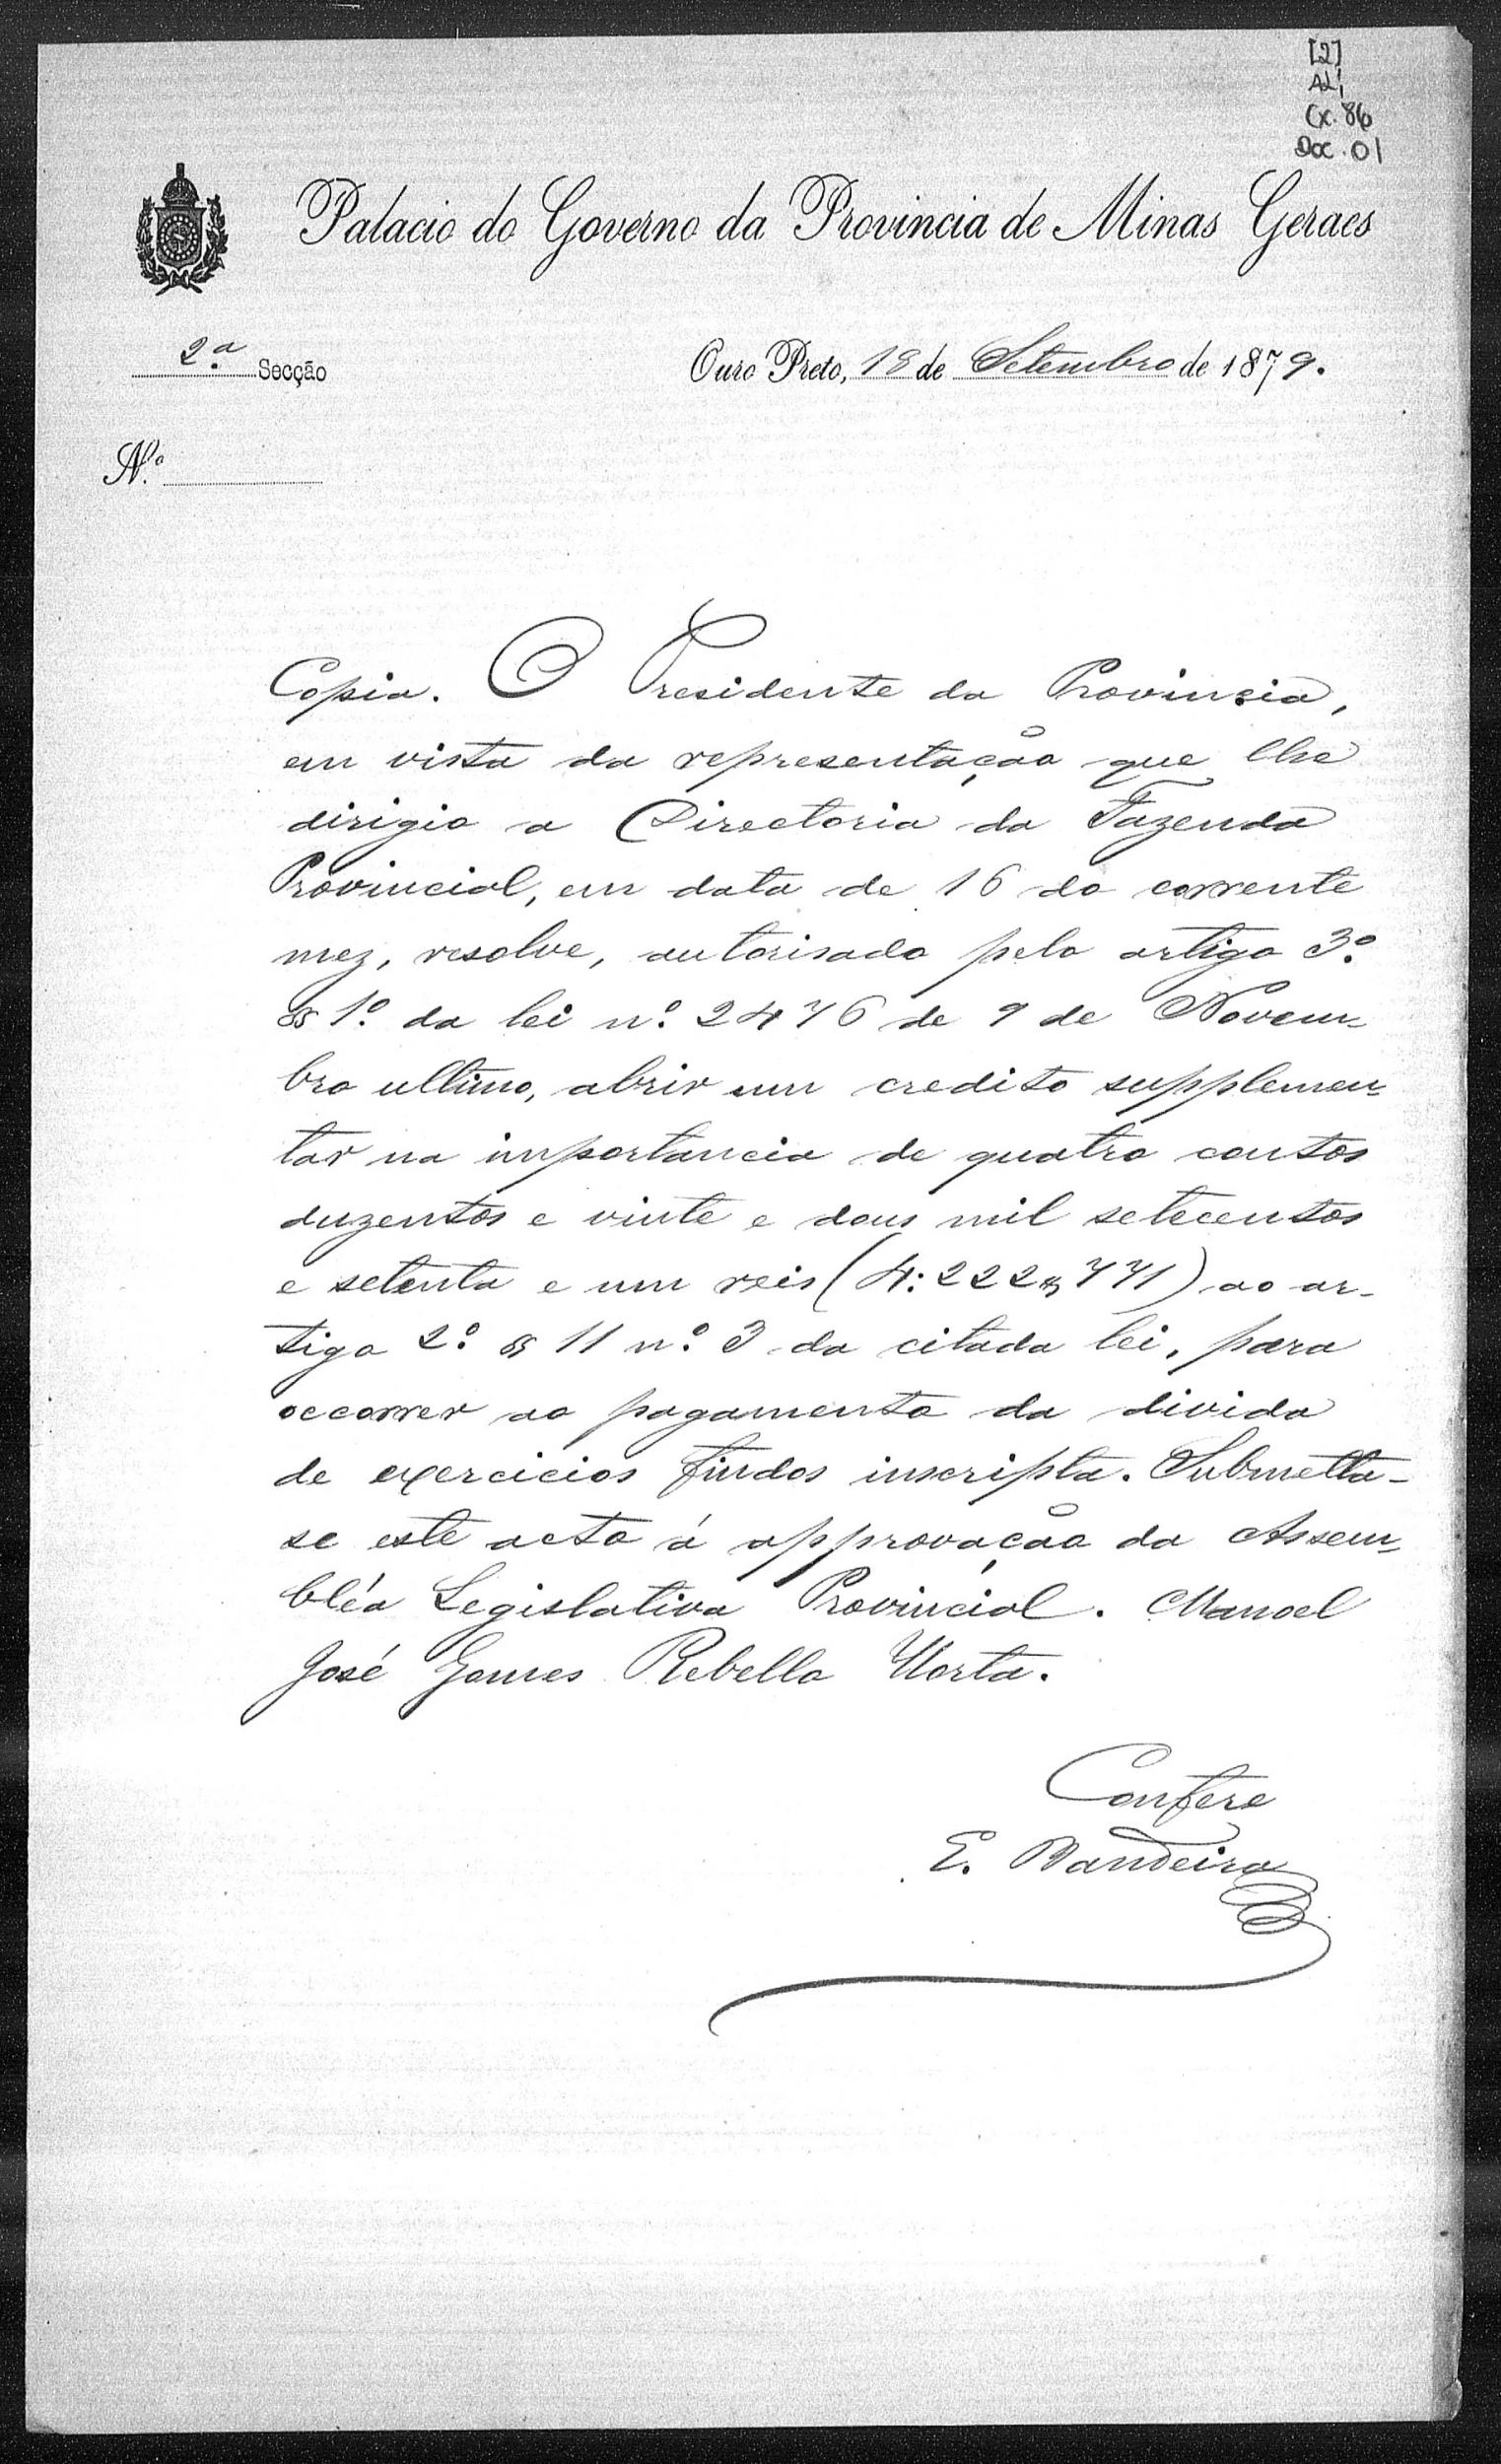 [2]
AL1
Cx. 86
Doc. 01
Palacio do Governo da Provincia de Minas Geraes
2.a Secção
Ouro Preto, 18 de Setembro de 1879.
N.o
Copia. O Presidente da Provincia,
em vista da representação que lhe
dirigio a Directoria da Fazenda
Provincial, em data de 16 do corrente
mez, resolve, autorisado pelo artigo 3.o
§ 1.o da lei n.o 2476 de 9 de Novem-
bro ultimo, abrir um credito supplemen-
tar na importancia de quatro contos
duzentos e vinte e dous mil setecentos
e setenta e um reis (4:222$771) ao ar-
tigo 2.o § 11 n.o 3 da citada lei, para
occorrer ao pagamento da divida
de exercicios findos inscripta. Submetta-
se este acto á approvação da Assem-
bléa Legislativa Provincial. Manoel
José Gomes Rebello Horta.
Confere
E. Bandeira